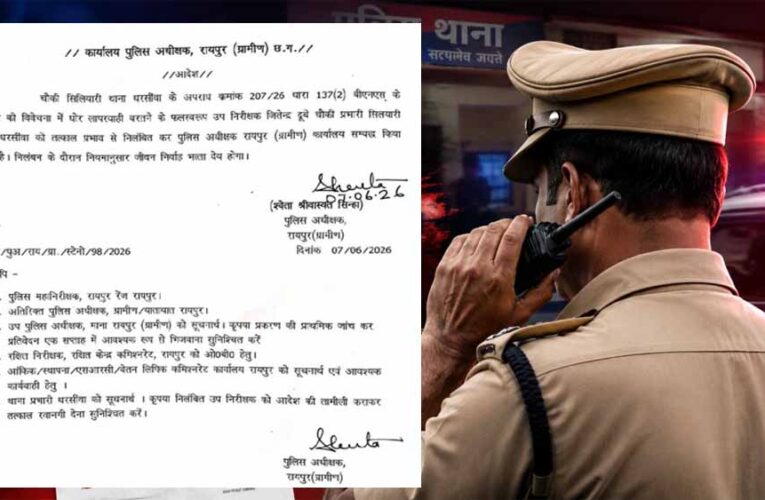 // कार्यालय पुलिस अधीक्षक, रायपुर (ग्रामीण) छ.ग.//
//आदेश//
चौकी सिलियारी थाना धरसींवा के अपराध क्रमांक 207/26 धारा 137(2) बीएनएस के
की विवेचना में घोर लापरवाही बरतने के फलस्वरूप उप निरीक्षक जितेन्द्र दूबे चौकी प्रभारी सिलयारी
धरसींवा को तत्काल प्रभाव से निलंबित कर पुलिस अधीक्षक रायपुर (ग्रामीण) कार्यालय सम्बद्ध किया
है। निलंबन के दौरान नियमानुसार जीवन निर्वाह भत्ता देय होगा।
07.06.26
(श्वेता श्रीवास्तव सिन्हा)
पुलिस अधीक्षक,
रायपुर(ग्रामीण)
/पुअ/राय/ग्रा./स्टेनो/98/2026
दिनांक 07/06/2026
पि –
पुलिस महानिरीक्षक, रायपुर रेंज रायपुर।
अतिरिक्त पुलिस अधीक्षक, ग्रामीण/यातायात रायपुर।
उप पुलिस अधीक्षक, माना रायपुर (ग्रामीण) को सूचनार्थ। कृपया प्रकरण की प्राथमिक जांच कर
प्रतिवेदन एक सप्ताह में आवश्यक रूप से भिजवाना सुनिश्चित करें
रक्षित निरीक्षक, रक्षित केन्द्र कमिश्नरेट, रायपुर को ओ0बी0 हेतु।
आंकिक/स्थापना/एसआरसी/वेतन लिपिक कमिश्नरेट कार्यालय रायपुर को सूचनार्थ एवं आवश्यक
कार्यवाही हेतु ।
थाना प्रभारी धरसींवा को सूचनार्थ । कृपया निलंबित उप निरीक्षक को आदेश की तामीली कराकर
तत्काल रवानगी देना सुनिश्चित करें।
पुलिस अधीक्षक,
रायपुर(ग्रामीण)
पुलिस थाना
सत्यमेव जयते